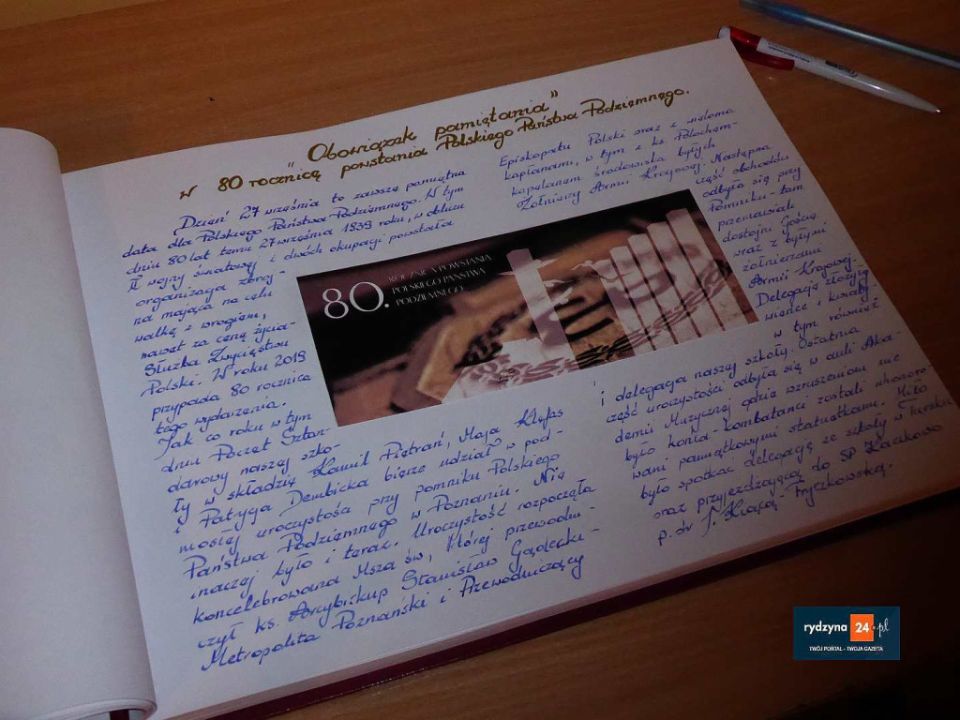 „Obowiązek pamiętania”
W 80 rocznicę powstania Polskiego Państwa Podziemnego.
Dzień 27 września to zawsze pamiętna
data dla Polskiego Państwa Podziemnego. W tym
dniu 80 lat temu 27 września 1939 roku, w obliczu
II wojny światowej i dwóch okupacji powstała
organizacja zbroj-
na mająca na celu
walkę z wrogiem,
nawet za cenę życia-
Służba Zwycięstwu
Polski. W roku 2019
przypada 80 rocznica
tego wydarzenia.
Jak co roku w tym
dniu Poczet Sztan-
darowy naszej szko-
ły w składzie Kamil Pietrań, Maja Klefas
i Patrycja Dembicka bierze udział w pod-
niosłej uroczystości przy pomniku Polskiego
Państwa Podziemnego w Poznaniu. Nie
inaczej było i teraz. Uroczystość rozpoczęła
koncelebrowana Msza św, której przewodni-
czył ks. Arcybiskup Stanisław Gądecki-
Metropolita Poznański i Przewodniczący
Episkopatu Polski wraz z wieloma
kapłanami, w tym z ks.
kapelanem środowiska byłych
Żołnierzy Armii Krajowej. Następna
część obchodów
odbyła się przy
Pomniku - tam
przemawiali
dostojni Goście
wraz z byłymi
żołnierzami
Armii Krajowej.
Delegacje złożyły
wieńce i kwiaty
w tym również
i delegacja naszej szkoły. Ostatnia
część uroczystości odbyła się w auli Aka-
demii Muzycznej gdzie wzruszeniom nie
było końca - kombatanci zostali uhonoro-
wani pamiątkowymi statuetkami. Miło
było spotkać delegację ze szkoły w
oraz przyjeżdżającą do SP Kaczkowo
p.
80. ROCZNICA POWSTANIA
POLSKIEGO PAŃSTWA
PODZIEMNEGO
rydzyna24.pl
TWÓJ PORTAL - TWOJA GAZETA